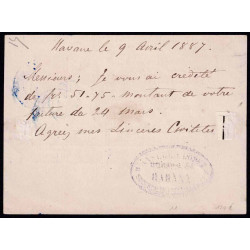 Havane le 9 Avril 1887.
Messieurs; Je vous ai credité
de fr 51.75 montant de votre
facture de 24 mars.
Agréez, mes Sinceres Civilités
HABANA